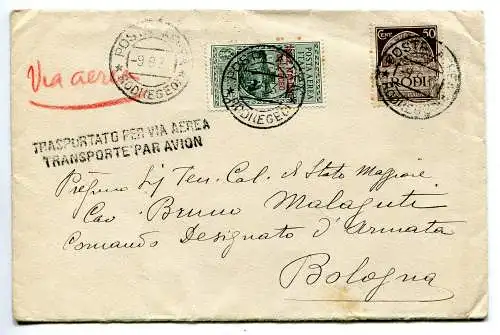 POSTA AEREA
- 9. 8. 2
* RODI (EGEO) *
Via aerea
POSTA AEREA
* RODI (EGEO) *
CENT 50
RODI
TRASPORTATO PER VIA AEREA
TRANSPORTE PAR AVION
Pregmo Sig Ten. Col. di Stato Maggiore
Cav Bruno Malaguti
Comando Designato d'Armata
Bologna